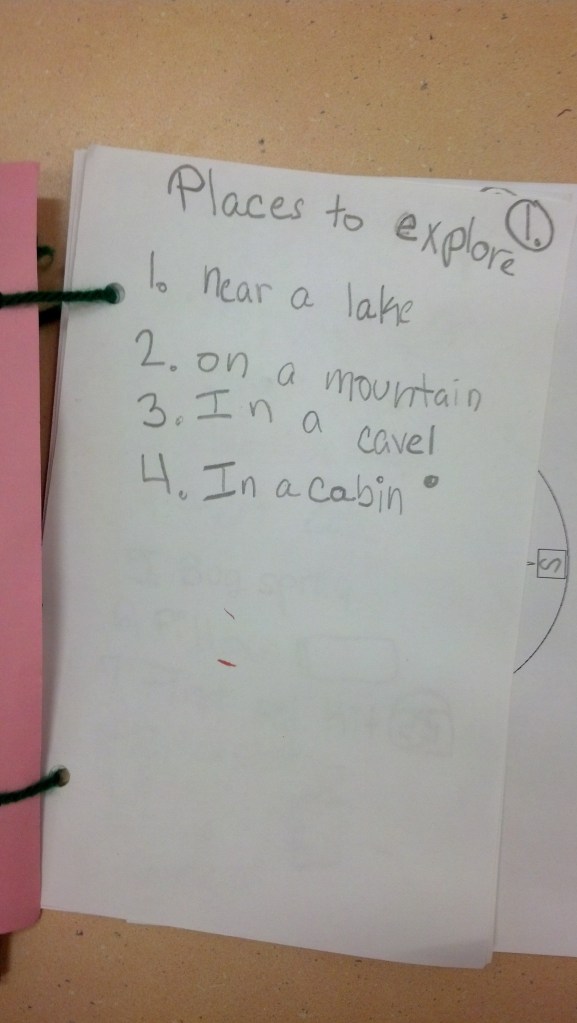 Places to explore
1.
1. near a lake
2. on a mountain
3. In a cavel
4. In a cabin
S